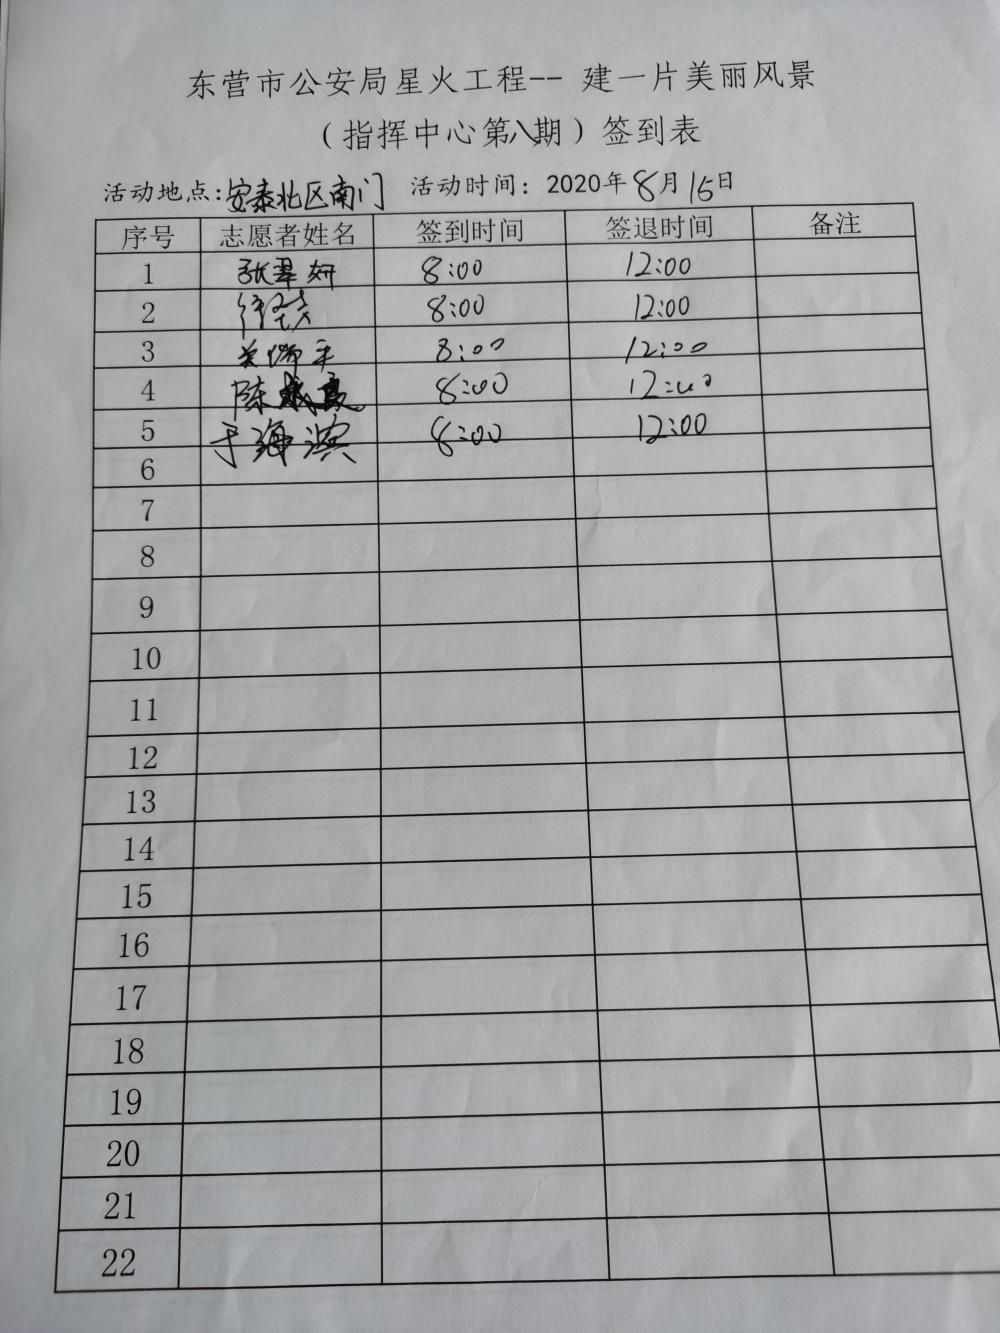 东营市公安局星火工程-- 建一片美丽风景
（指挥中心第八期）签到表
活动地点：安泰北区南门 活动时间：2020年8月15日
序号 志愿者姓名 签到时间 签退时间 备注
1 张翠妍 8:00 12:00
2 8:00 12:00
3 8:00 12:00
4 陈 8:00 12:00
5 于海滨 8:00 12:00
6
7
8
9
10
11
12
13
14
15
16
17
18
19
20
21
22